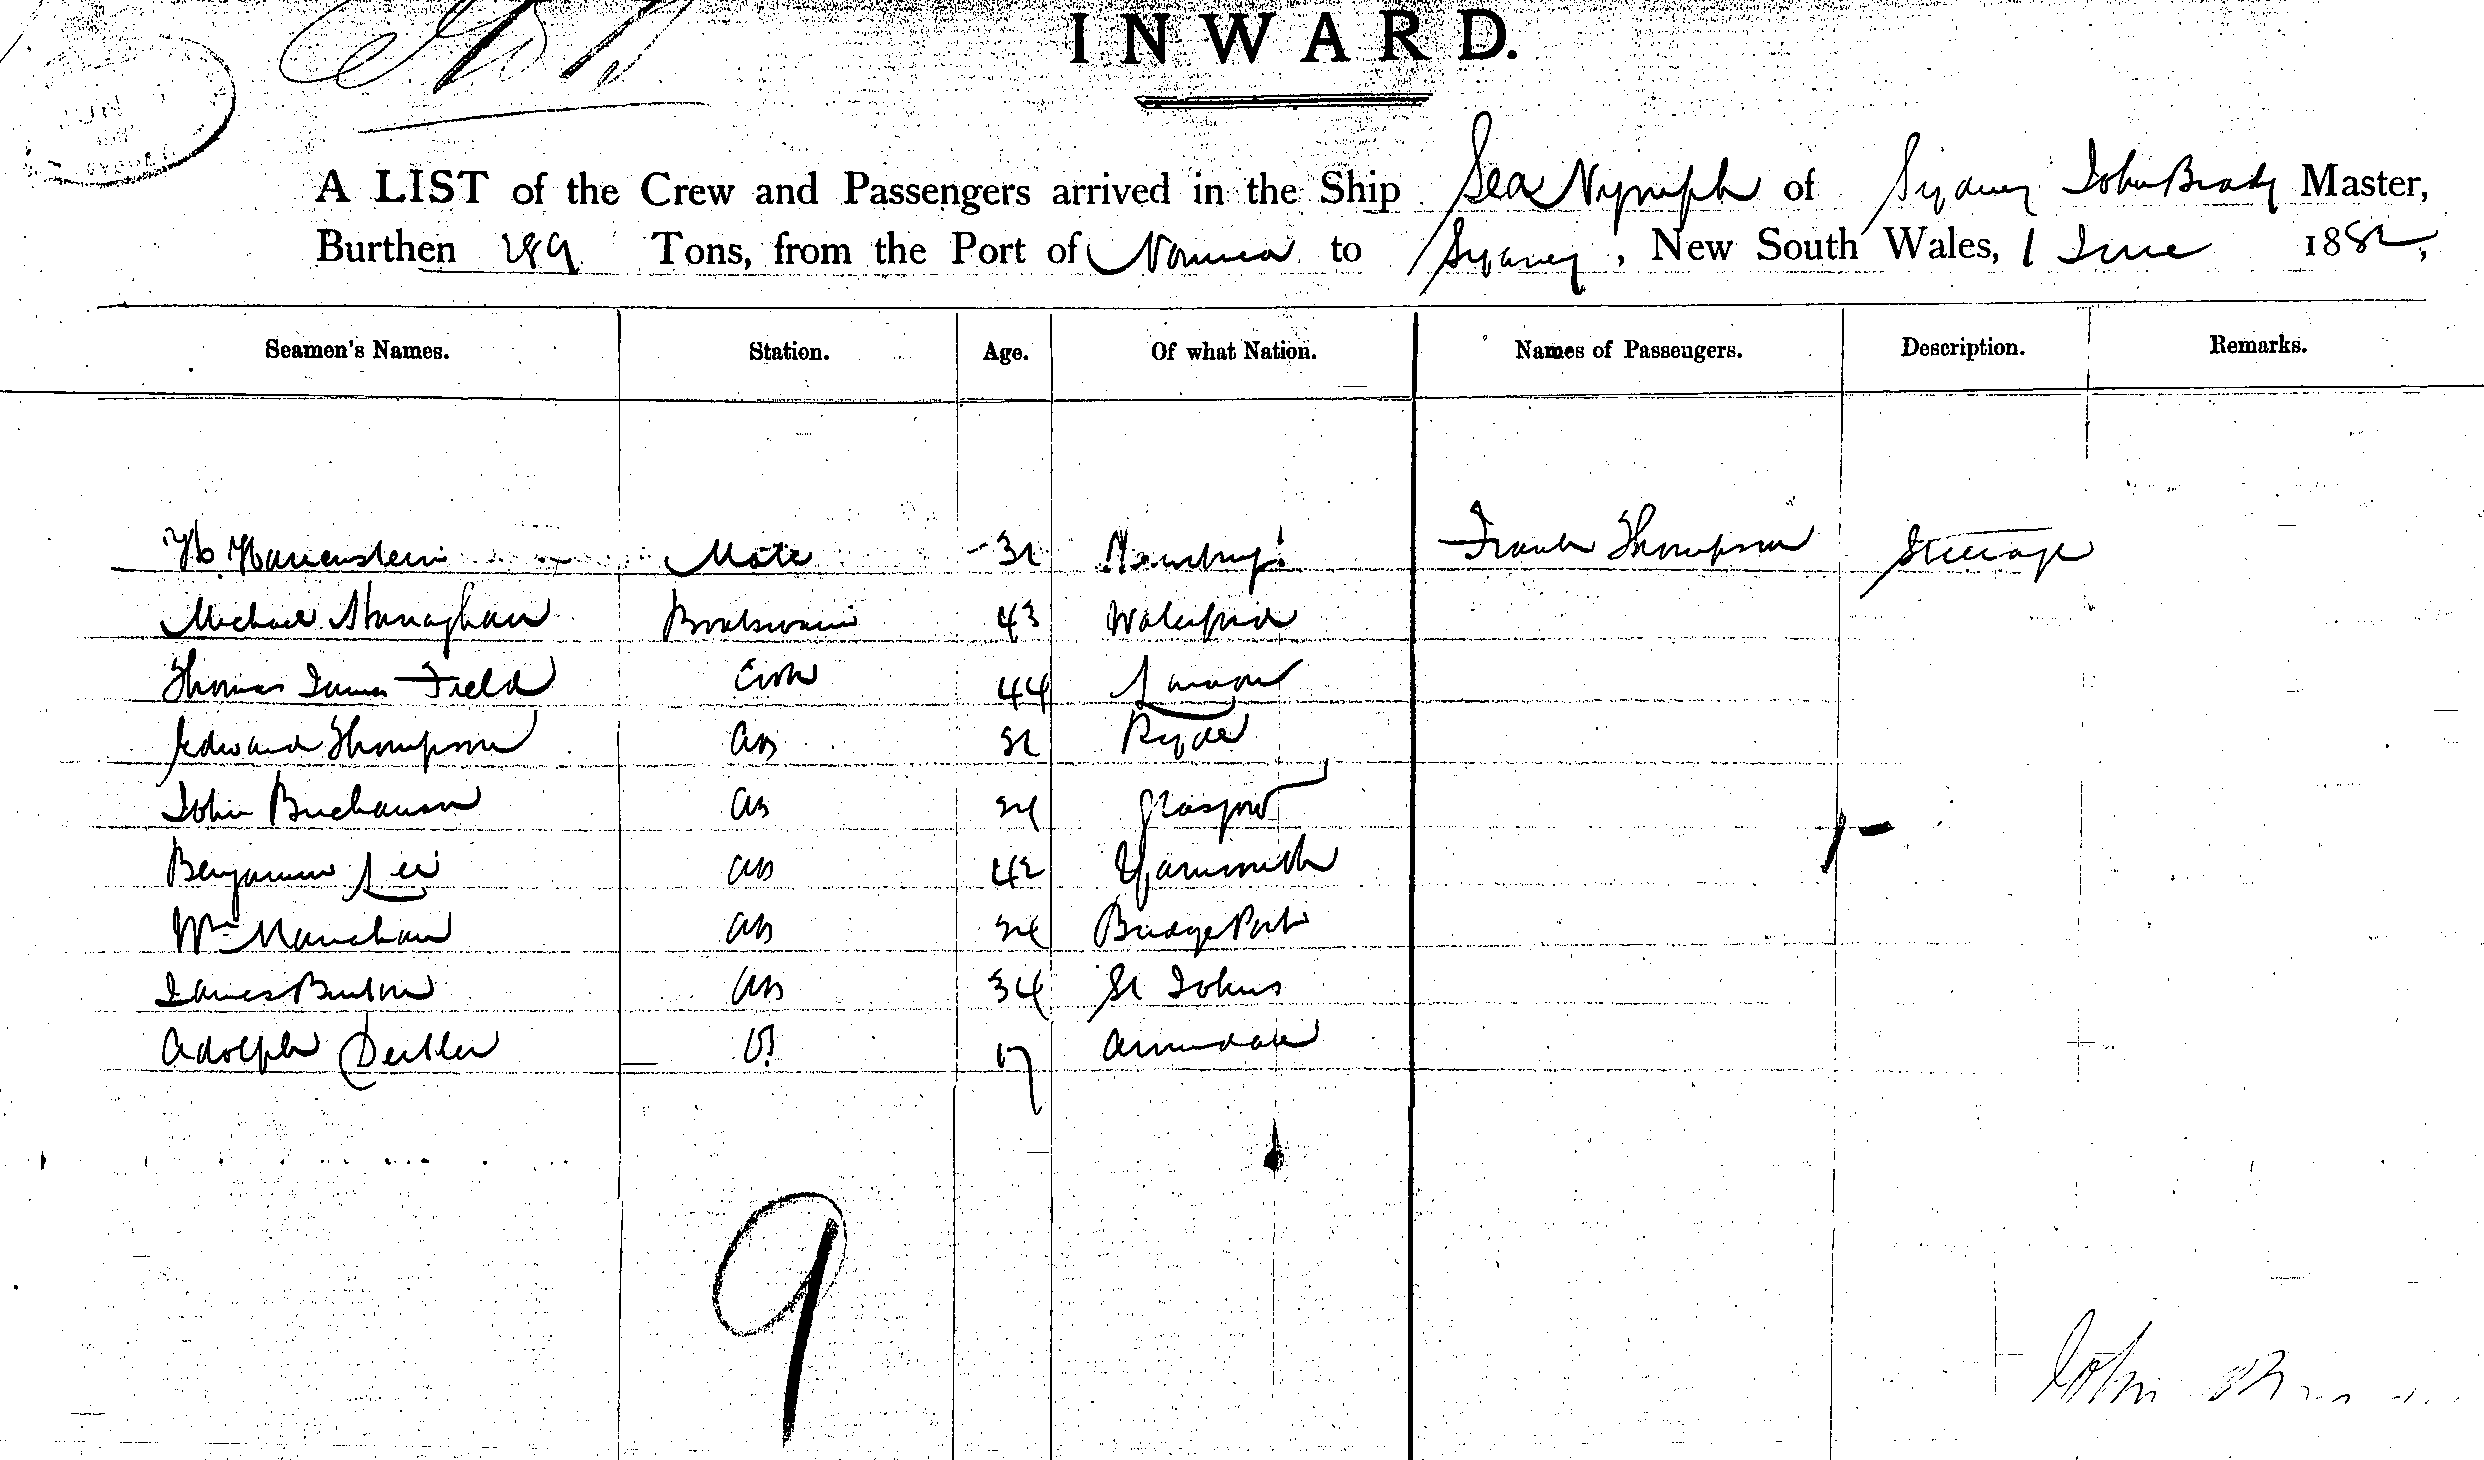 INWARD.
A LIST of the Crew and Passengers arrived in the Ship Sea Nymph of Sydney John Brady Master,
Burthen 189 Tons, from the Port of Noumea to Sydney, New South Wales, 1 June 1882,
Seamen's Names. Station. Age. Of what Nation. Names of Passengers. Description. Remarks.
Mate 32 Hamburg Frank Thompson Steerage
Michael Boatswain 43 Waterford
Thomas James Field Cook 44 London
Edward Thompson AB Ryde
John Buchanan AB Glasgow
Benjamin Lee AB 42 Yarmouth
Wm AB Bridge Port
James AB 34 St Johns
Adolph OS 17
9
John